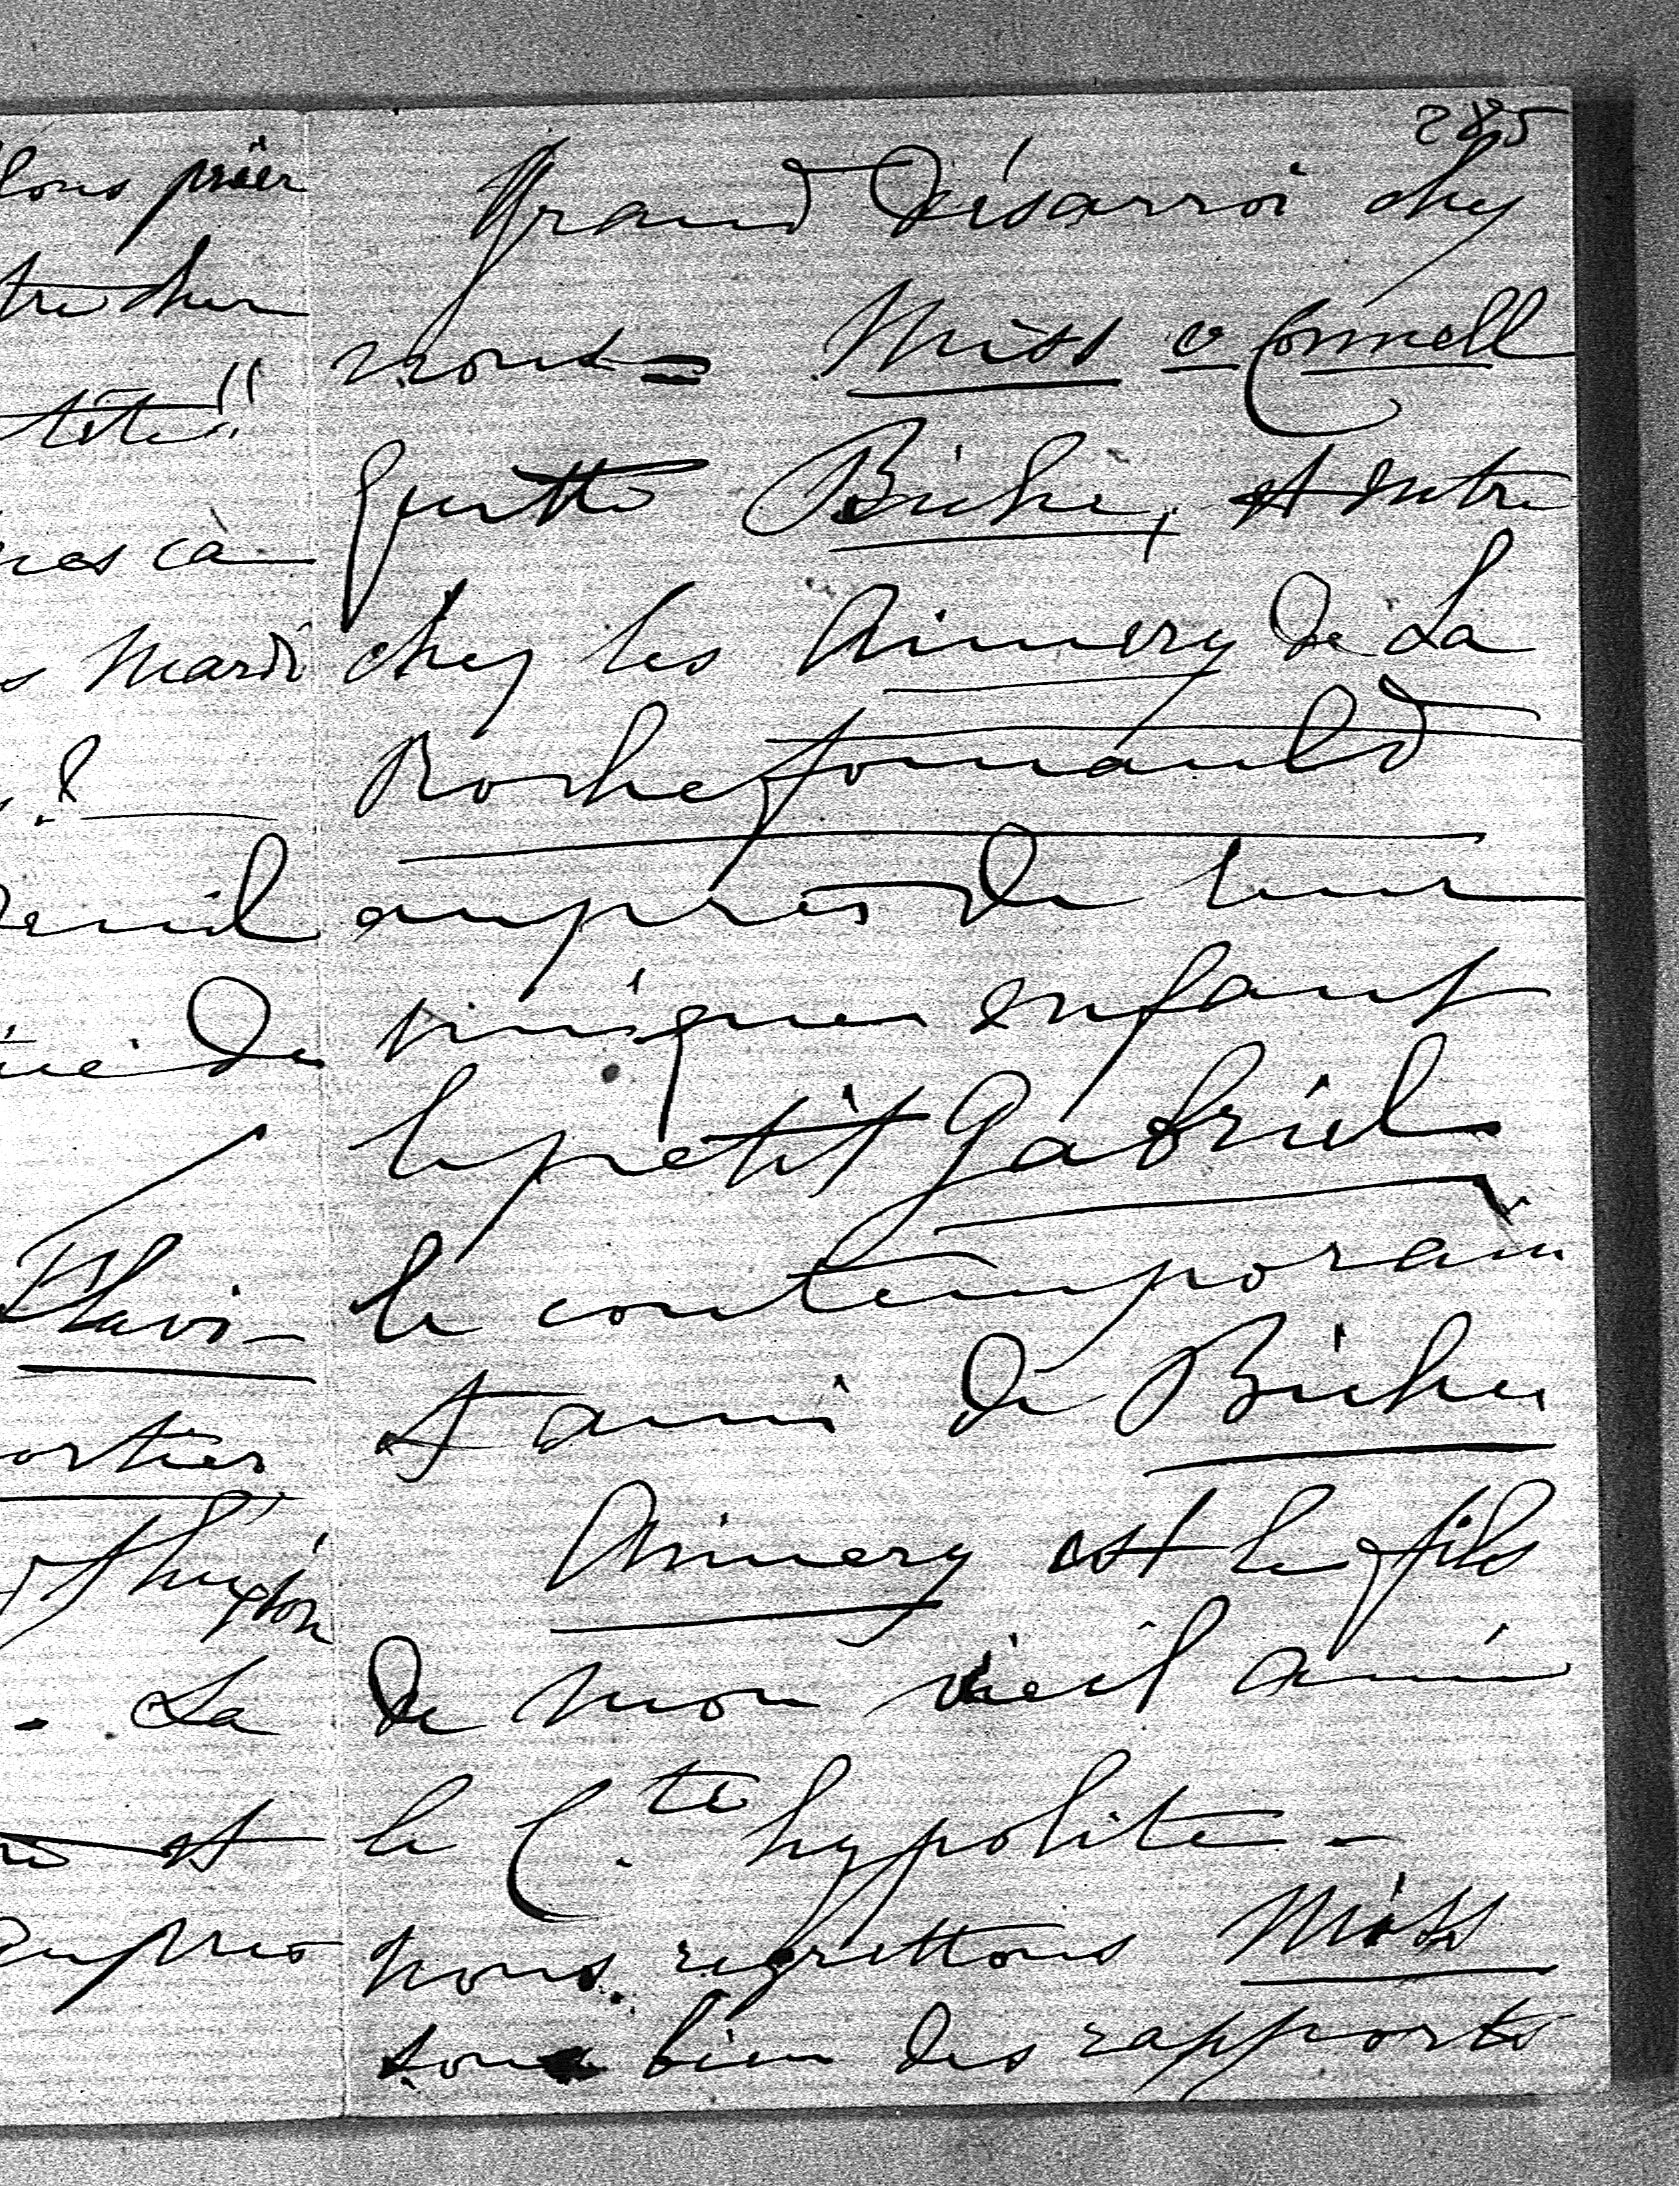 285
Grand désarroi chez
nous = Miss O Connell
quitte Bichi, et entre
chez les Aimery de La
Rochefoucauld
auprès de leur
unique enfant
le petit Gabriel
le contemporain
et ami de Bichi
Aimery est le fils
de mon vieil ami
le C.te hypolite -
nous regrettons Miss
sous bien des rapports
lous prier
tre cher
tête!!
res cà
s Mardi
?
euil
ié de
Flavi-
ortier
. La
et
auprès